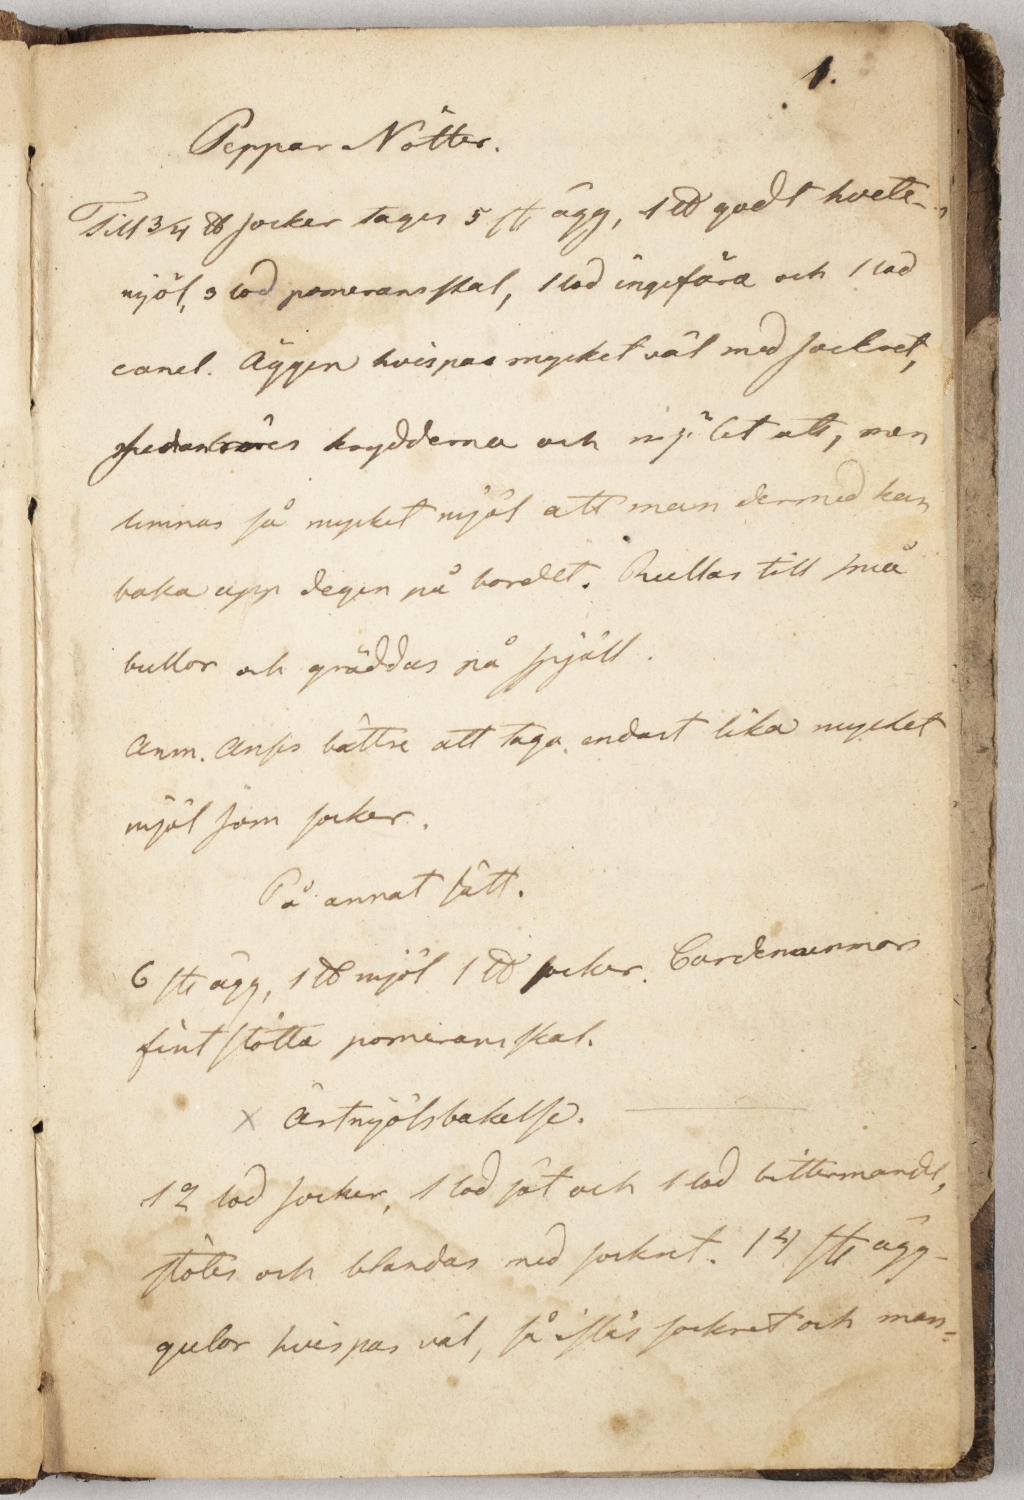 1.
Peppar Nötter.
Till 3/4 ℔ socker tages 5 st ägg, 1 ℔ godt hvete-
mjöl, 3 lod pomeransskal, 1 lod ingefära och 1 lod
canel. Äggen hvispas mycket väl med sockret,
sedan röres krydderna och mjölet uti, men
lemnas så mycket mjöl att man dermed kan
baka upp degen på bordet. Rullas till små
bullor och gräddas på spjäll.
Anm. Anses bättre att taga endast lika mycket
mjöl som socker.
På annat sätt.
6 st ägg, 1 ℔ mjöl 1 ℔ socker. Cardemummor
fint stötta pomeransskal.
x Ärtmjölsbakelse.
12 lod socker, 1 lod söt och 1 lod bittermandel,
stötes och blandas med sockret. 14 st ägg-
gulor hvispas väl, så islås sockret och man=